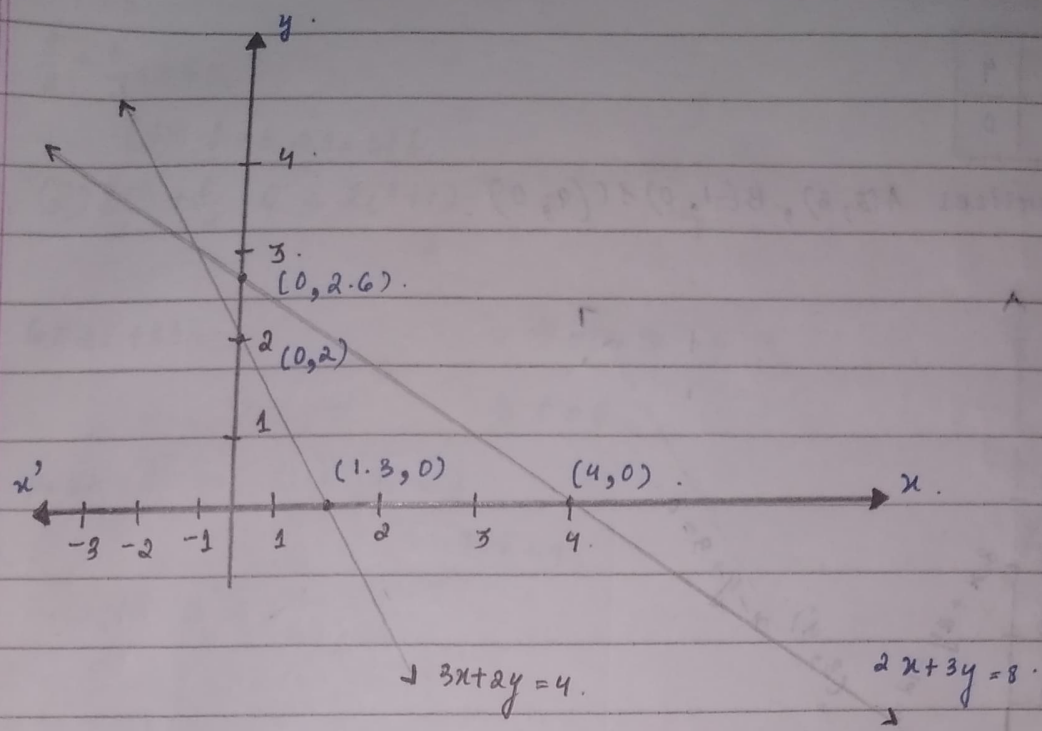 y.
4.
3.
(0, 2.6).
2 (0,2)
1
(1.3, 0) (4,0).
x' x.
-3 -2 -1 1 2 3 4.
3x+2y=4.
2x+3y=8.